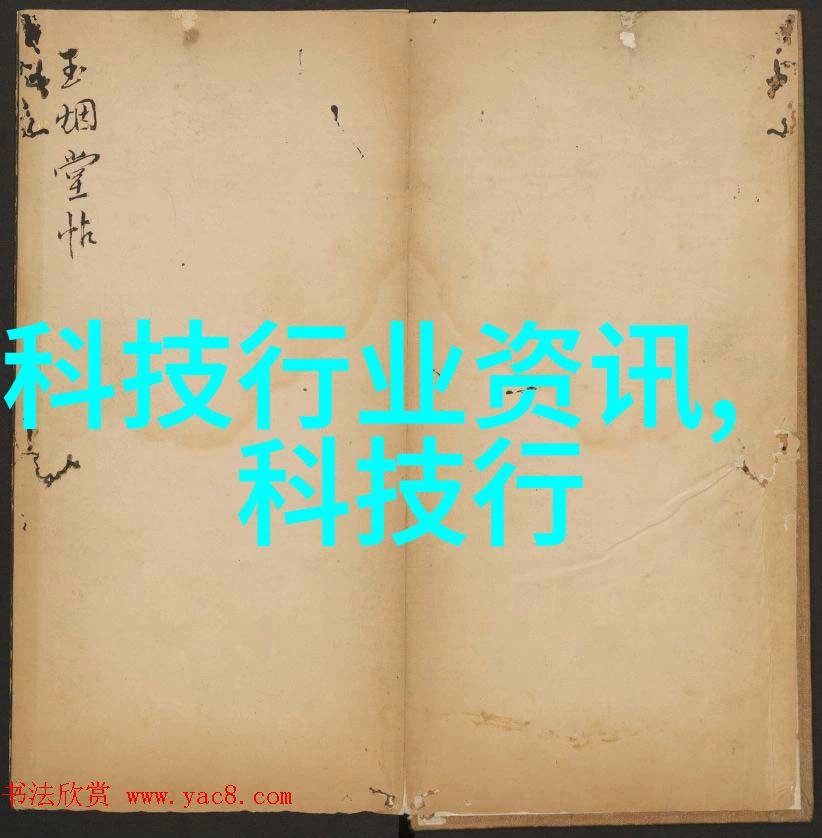 玉烟堂帖
科技行业资讯,
科技行
书法欣赏 www.yac8.com